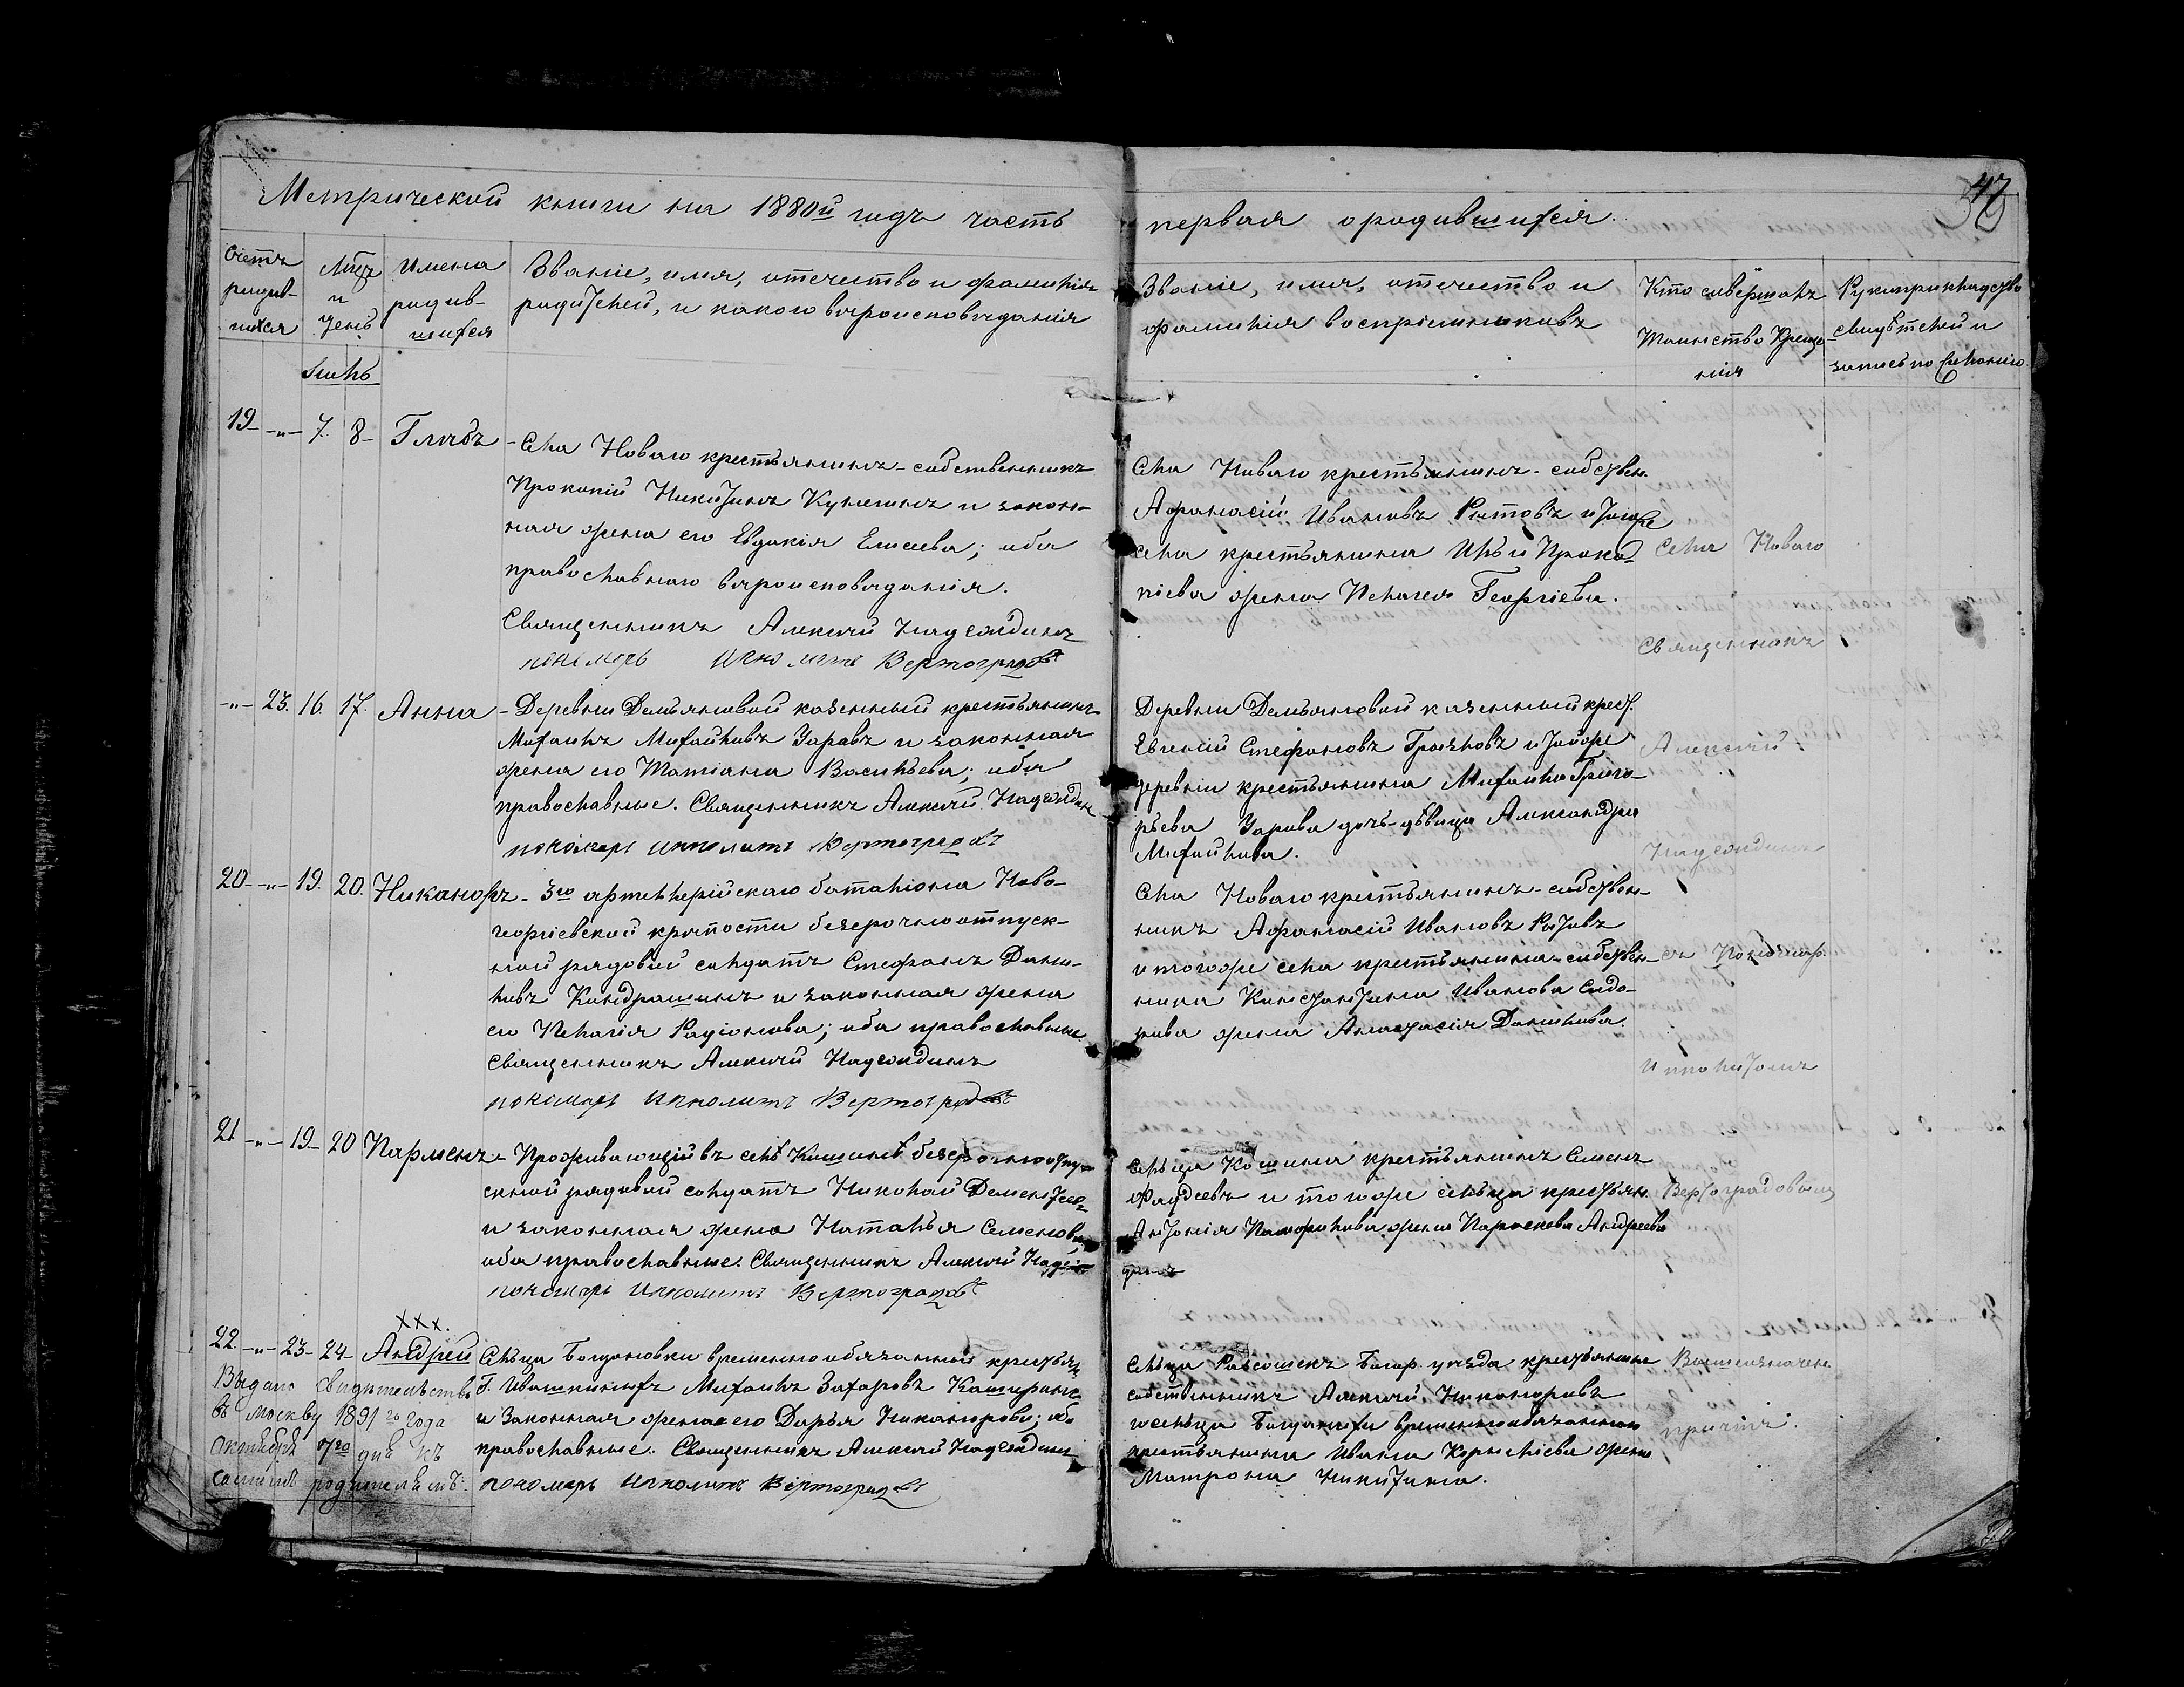 Метрической книги на 1880й годъ часть
первая о родившихся.
47
Счетъ родив-шихся
Мѣсяцъ и день
Имена родив-шихся
Званіе, имя, отечество и фамилія
родителей, и какого вѣроисповѣданія
Званіе, имя, отечество и
фамилія воспріемниковъ
Кто совершалъ
Таинство Креще-
нія
Рукоприкладство
свидѣтелей и
запись по желанію.
Іюль
19 - „ - 7. 8 - Глѣбъ
- Села Новаго крестьянинъ-собственникъ
Прокопій Никитинъ Кулешинъ и закон-
ная жена его Евдокія Елисеева; оба
православнаго вѣроисповѣданія.
Священникъ Алексѣй Надеждинъ
пономарь Ипполитъ Вертоградовъ
Села Новаго крестьянинъ-собствен.
Афанасій Ивановъ Рытовъ и тогоже
села крестьянина Ильи Проко-
піева жена Пелагея Георгіева.
Села Новаго
Священникъ
- „ - 23. 16. 17. Анна
- Деревни Демьяновой казенный крестьянинъ
Михаилъ Михайловъ Заровъ и законная
жена его Татіана Васильева; оба
православные. Священникъ Алексѣй Надеждинъ
пономарь Ипполитъ Вертоградовъ
Деревни Демьяновой казенный крест.
Евгеній Стефановъ Грязновъ и тойже
деревни крестьянина Михаила Григо-
рьева Зарова дочь-дѣвица Александра
Михайлова.
Алексѣй
Надеждинъ
20 - „ - 19. 20. Никаноръ
- 3го артиллерійскаго баталіона Ново-
георгіевской крѣпости безсрочноотпуск-
ной рядовой солдатъ Стефанъ Дани-
ловъ Кондрашинъ и законная жена
его Пелагія Родіонова; оба православные
Священникъ Алексѣй Надеждинъ
пономарь Ипполитъ Вертоградовъ
Села Новаго крестьянинъ-собствен-
никъ Афанасій Ивановъ Рытовъ
и тогоже села крестьянина-собствен-
ника Константина Иванова Сидо-
рова жена Анастасія Данилова.
съ Пономар.
Ипполитомъ
21 - „ - 19 - 20 Парменъ
- Проживающій въ селѣ Кошинѣ безсрочноотпу-
скной рядовой солдатъ Николай Дементьевъ
и законная жена Наталья Семенова,
оба православные. Священникъ Алексѣй Надеж-
динъ
пономарь Ипполитъ Вертоградовъ
Сельца Кошина крестьянинъ Семенъ
Фаддеевъ и тогоже сельца крестьян.
Антонія Памфилова жена Параскева Андреева
Вертоградовымъ
ххх.
22 - „ - 23 - 24 - Андрей
Сельца Богдановки временнообязанный крестьян.
Г. Ивашкиныхъ Михаилъ Захаровъ Каширинъ
и законная жена его Дарья Никанорова; оба
православные. Священникъ Алексѣй Надеждинъ
пономарь Ипполитъ Вертоградовъ
Выдано свидѣтельство
въ Москву 1891го года
Октября 7го дня къ
самимъ родителямъ.
Сельца Богор. уѣзда крестьянинъ
собственникъ Алексѣй Никаноровъ
и сельца Богдановки временнообязаннаго
крестьянина Ивана Корнеліева жена
Матрона Никитина.
Вышеозначен.
причтъ.